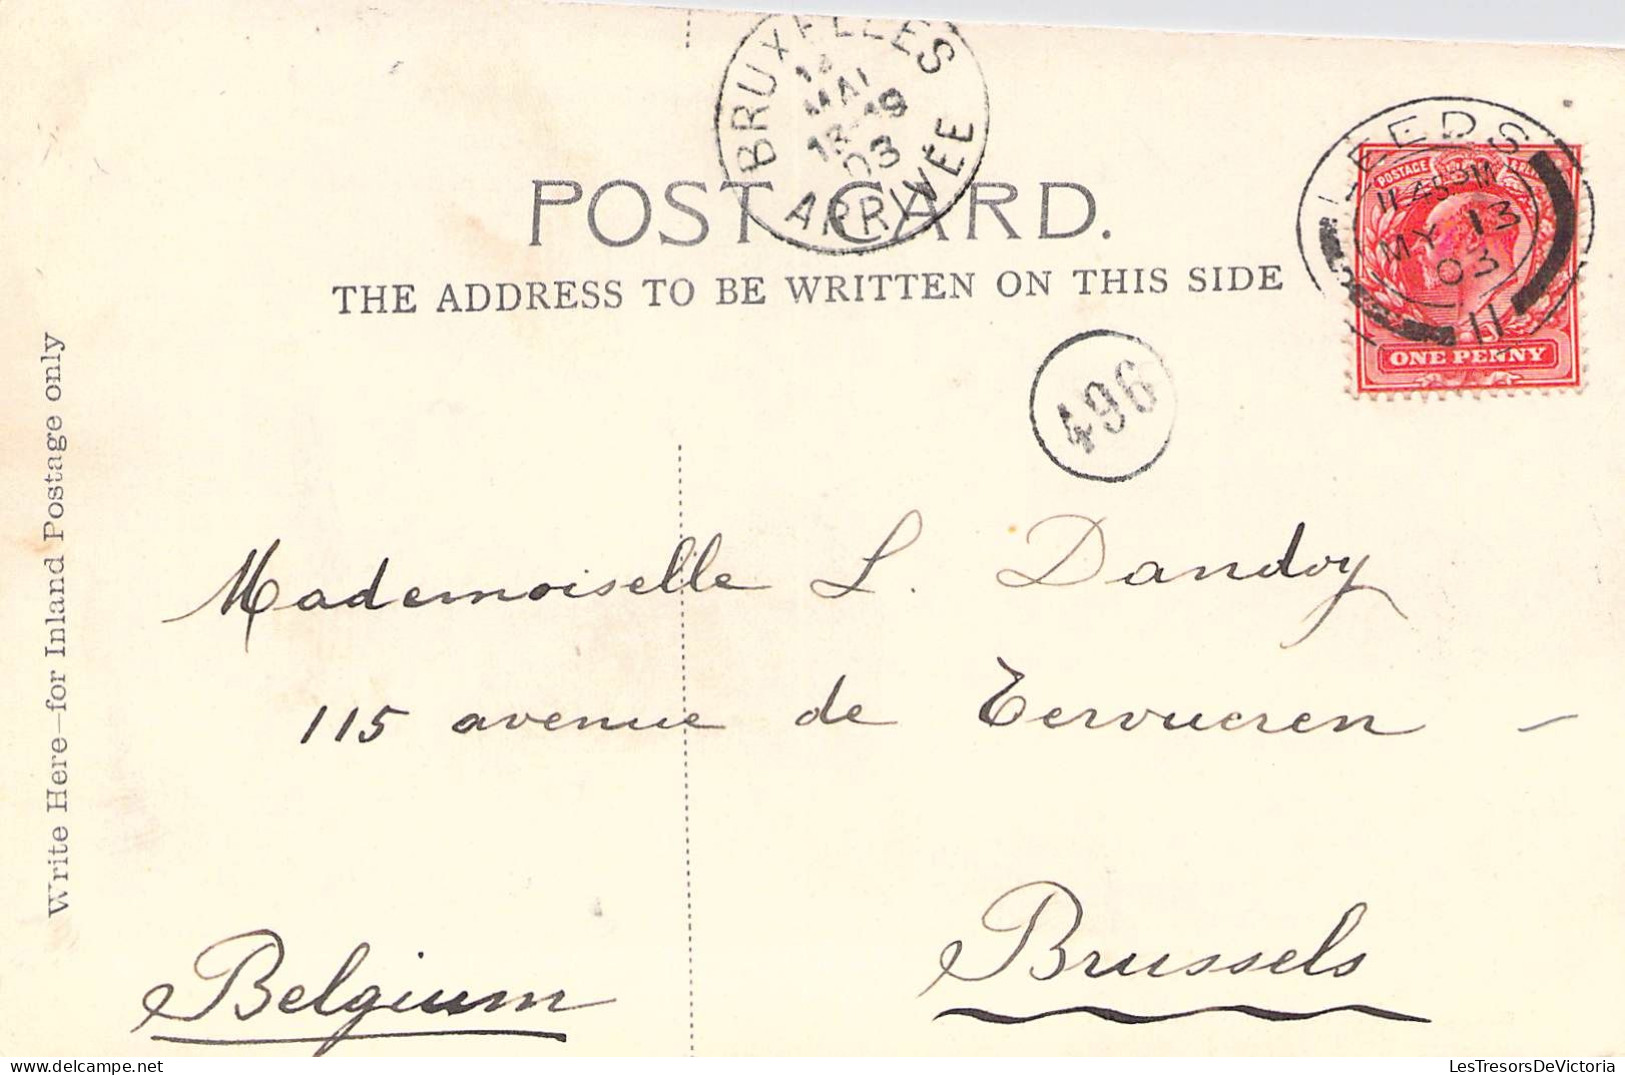 BRUXELLES
14
MAI
18-19
03
ARRIVÉE
LEEDS
MY 13
03
11
POSTAGE
ONE PENNY
POST CARD.
THE ADDRESS TO BE WRITTEN ON THIS SIDE
496
Write Here—for Inland Postage only
Mademoiselle L. Dandoy
115 avenue de Tervueren –
Brussels
Belgium
LesTresorsDeVictoria